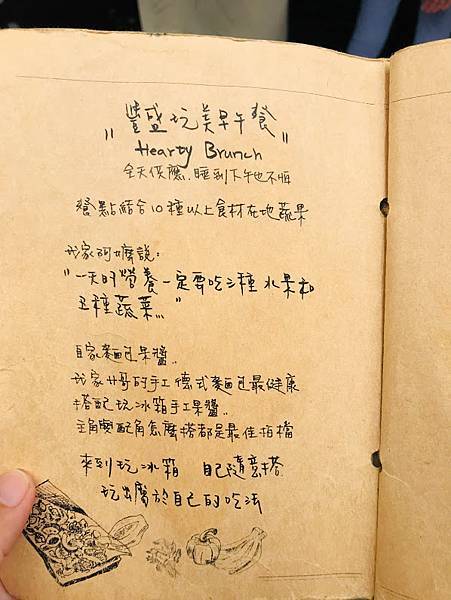 "豐盛玩美早午餐"
Hearty Brunch
全天供應．睡到下午也不怕
餐點結合10種以上食材在地蔬果
我家阿嬤說：
"一天的營養一定要吃三種水果和
五種蔬菜..."
自家麵包果醬..
我家廿哥的手工德式麵包最健康
搭配玩冰箱手工果醬..
主角與配角怎麼搭都是最佳拍檔
來到玩冰箱 自己隨意搭
玩出屬於自己的吃法